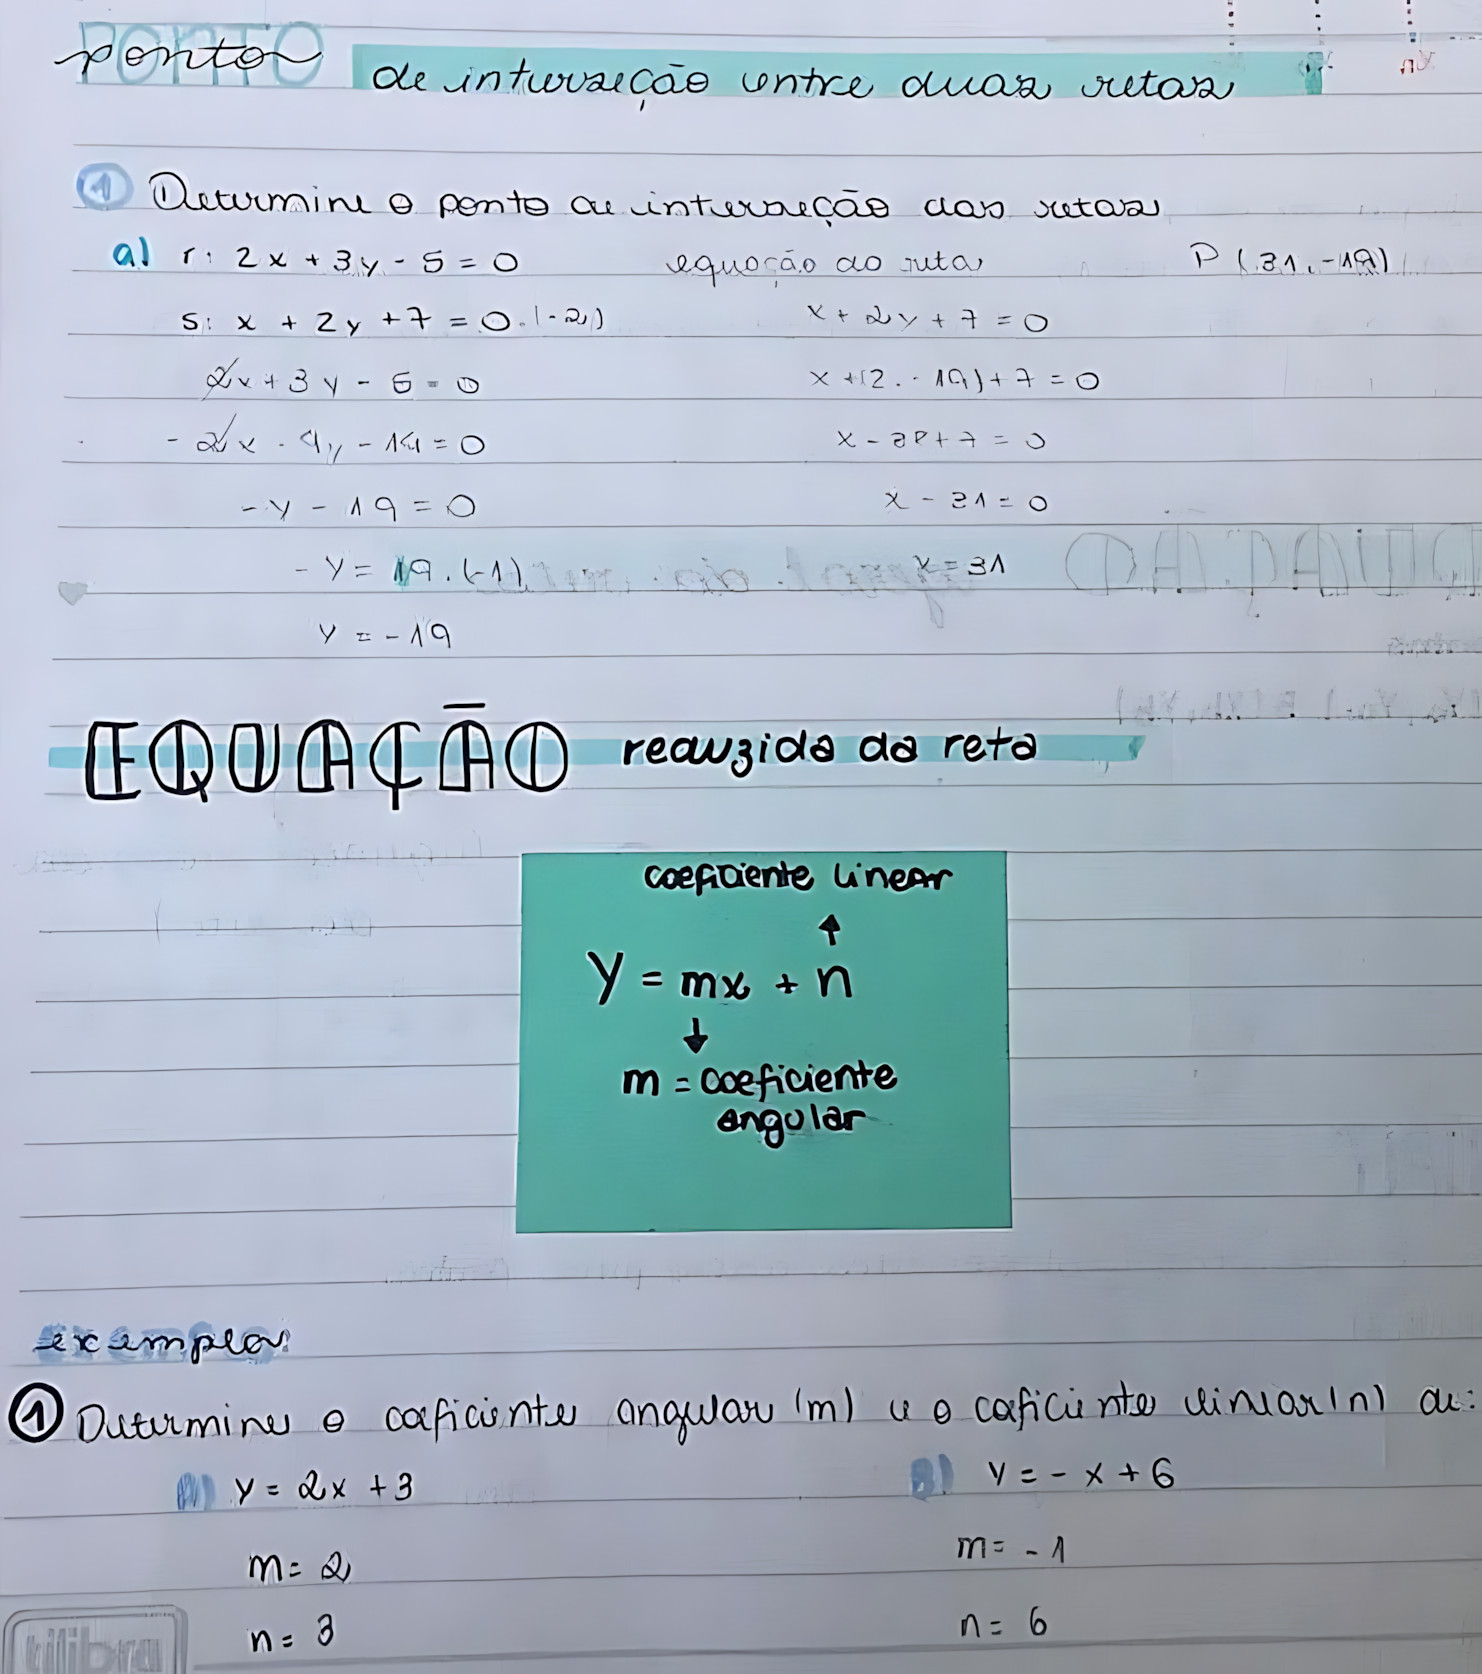 ponto de interseção entre duas retas
1 Determine o ponto de interseção das retas
a) r: 2x + 3y - 5 = 0
s: x + 2y + 7 = 0 .(-2)
2x + 3y - 5 = 0
- 2x - 4y - 14 = 0
- y - 19 = 0
- y = 19 . (-1)
y = - 19
equação da reta
x + 2y + 7 = 0
x + (2 . - 19) + 7 = 0
x - 38 + 7 = 0
x - 31 = 0
x = 31
P (31, -19)
EQUAÇÃO reduzida da reta
coeficiente linear
y = mx + n
m = coeficiente
angular
exemplo:
1 Determine o coeficiente angular (m) e o coeficiente linear (n) de:
A) y = 2x + 3
m = 2
n = 3
B) y = - x + 6
m = - 1
n = 6
tilibra